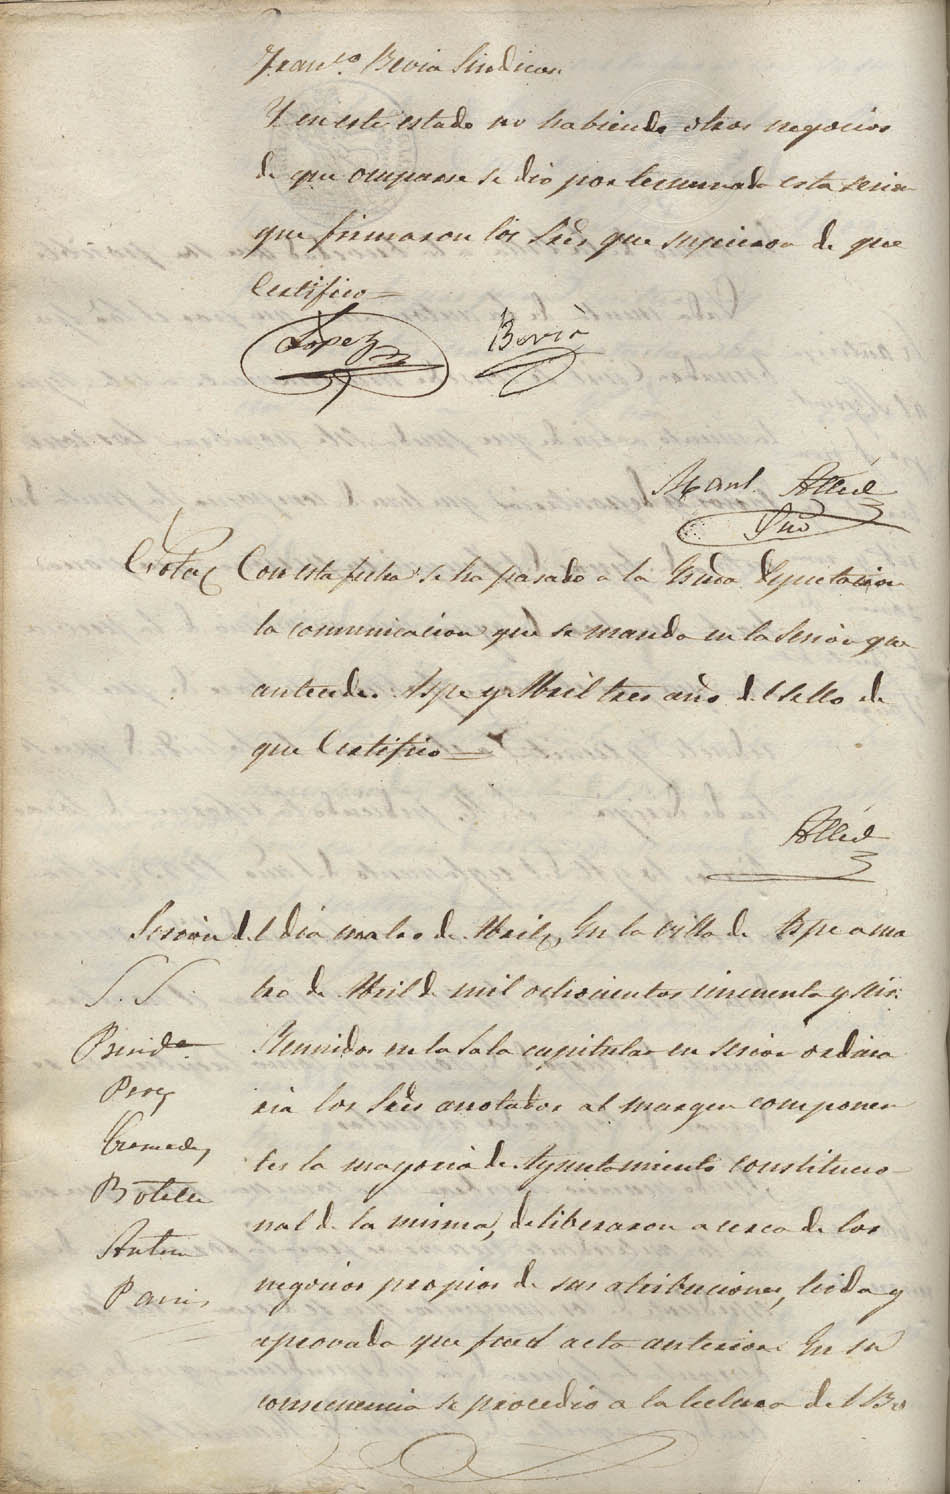 Fran.co Bevia Sindicos
Y en este estado no habiendo otros negocios
de que ocuparse se dio por terminada esta sesion
que firmaron los Sres que supieron de que
Certifico
Lopez Bevià
Man.l Alted
Srio
Nota Con esta fecha se ha pasado a la Diputacion
la comunicacion que se manda en la Sesion que
antecede. Aspe y Abril tres año del sello de
que Certifico
Alted
Sesion del dia cuatro de Abril, En la villa de Aspe a cua
tro de Abril de mil ochocientos cincuenta y seis.
S. S.
Reunidos en la Sala capitular en sesion ordina
Presid.te
ria los Sres anotados al margen componen
tes la mayoria de Ayuntamiento constitucio
Cremades
nal de la misma, deliberaron acerca de los
Botella
negocios propios de sus atribuciones, leida y
Anton
aprovada que fue el acta anterior. En su
consecuencia se procedio a la lectura del Bo